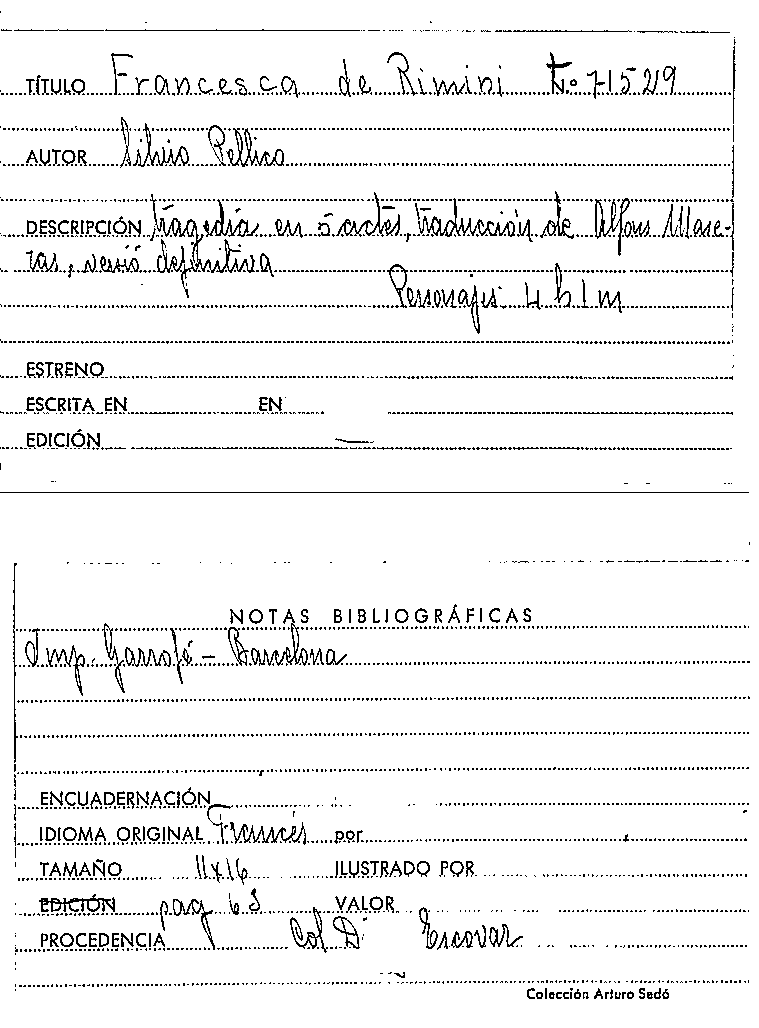 TÍTULO Francesca de Rimini t.o 71529
AUTOR Silvio Pellico
DESCRIPCIÓN tragedia en 5 actes, traducción de Alfons Mase-
ras, versió definitiva
Personajes 4 h 1 m
ESTRENO
ESCRITA EN EN
EDICIÓN —
NOTAS BIBLIOGRÁFICAS
Imp. Garrofé - Barcelona
ENCUADERNACIÓN
IDIOMA ORIGINAL Francés por
TAMAÑO 11x16 ILUSTRADO POR
EDICIÓN pag 63 VALOR
PROCEDENCIA Col D. Escovar
Colección Arturo Sedó